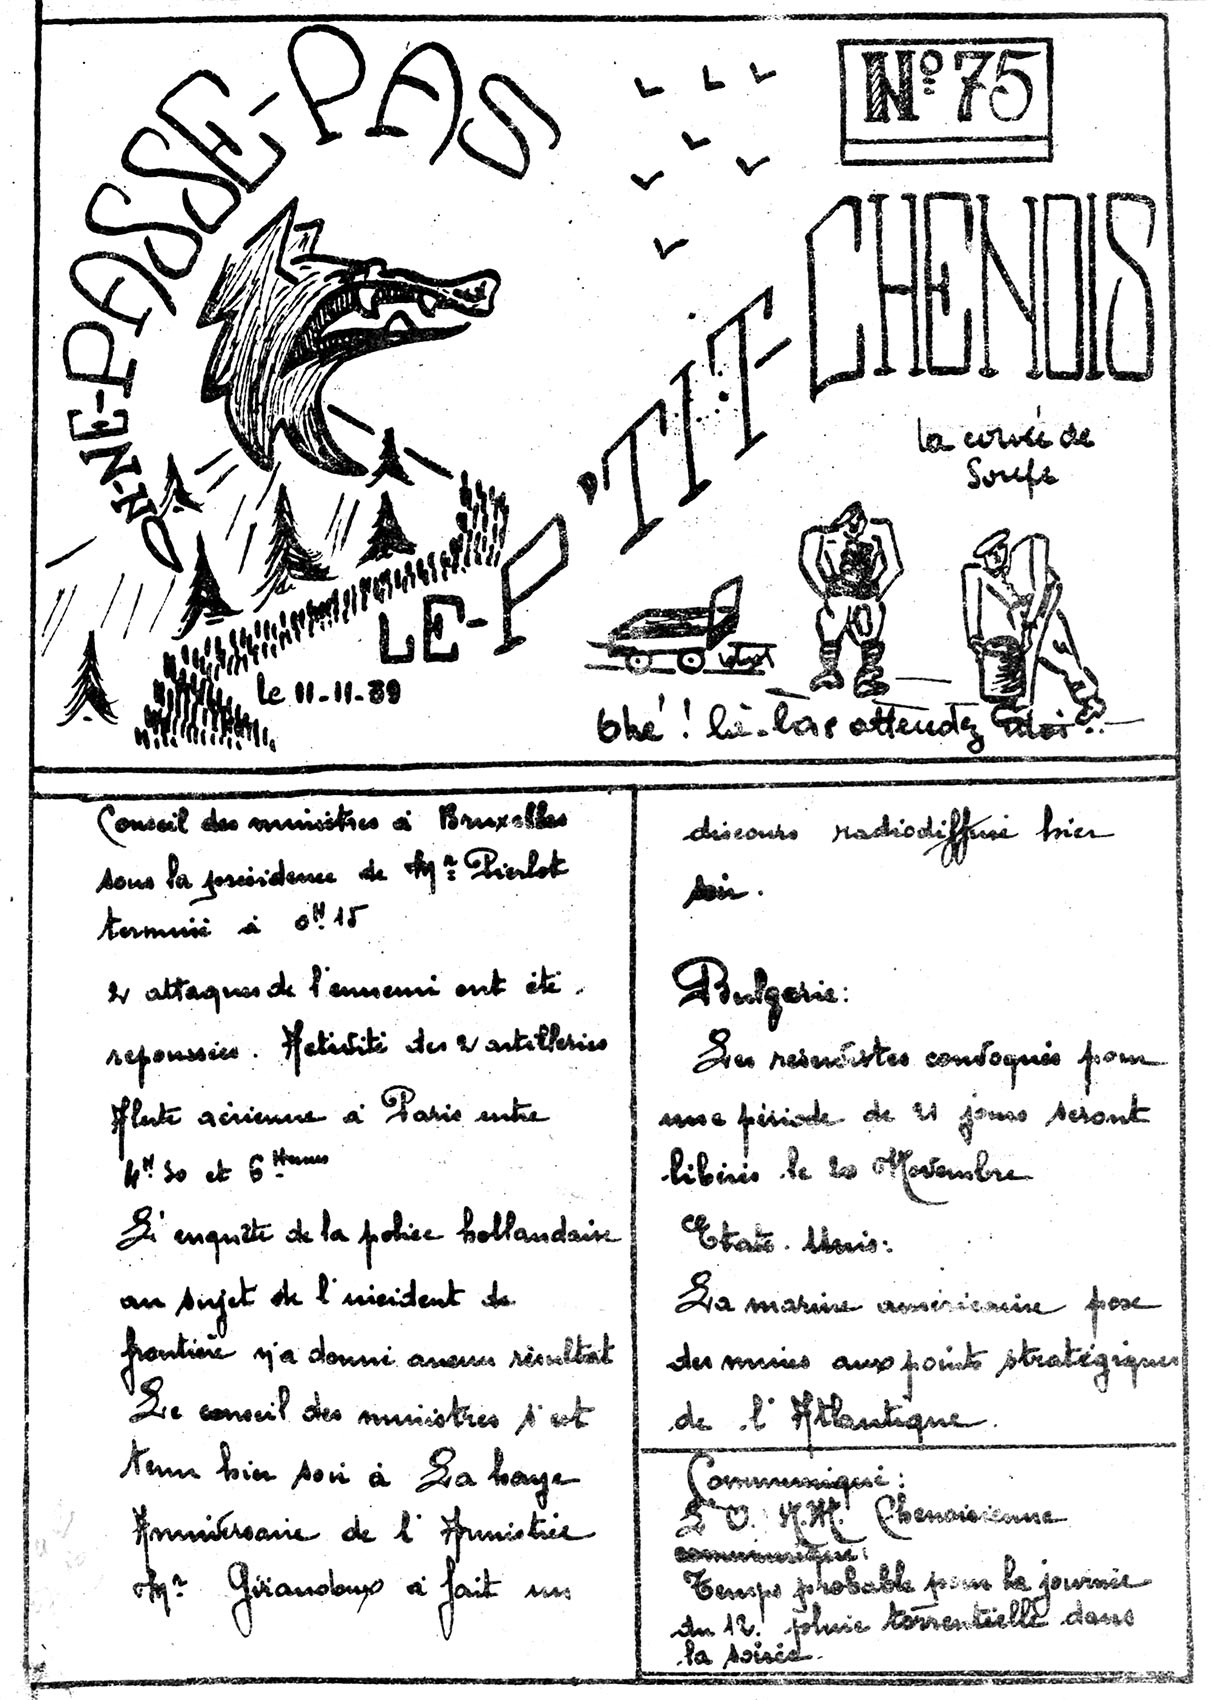 ON-NE-PASSE-PAS
N° 75
LE-P'TIT CHENOIS
la corvée de
Soupe
le 11-11-39
Ohé ! là-bas attendez moi..
Conseil des ministres à Bruxelles
sous la présidence de Mr Pierlot
terminé à 0H 15
2 attaques de l'ennemi ont été
repoussées. Activité des 2 artilleries
Alerte aérienne à Paris entre
4H 30 et 6 Heures
L'enquête de la police hollandaise
au sujet de l'incident de
frontière n'a donné aucun résultat
Le conseil des ministres s'est
tenu hier soir à La haye
Anniversaire de l'Armistice
Mr Giraudoux a fait un
discours radiodiffusé hier
soir.
Bulgarie:
Les réservistes convoqués pour
une période de 21 jours seront
libérés le 20 Novembre
Etats-Unis:
La marine américaine pose
des mines aux points stratégiques
de l'Atlantique.
Communiqué:
L'O.N.M. Chenoisienne
communique:
Temps probable pour la journée
du 12. pluie torrentielle dans
la soirée.